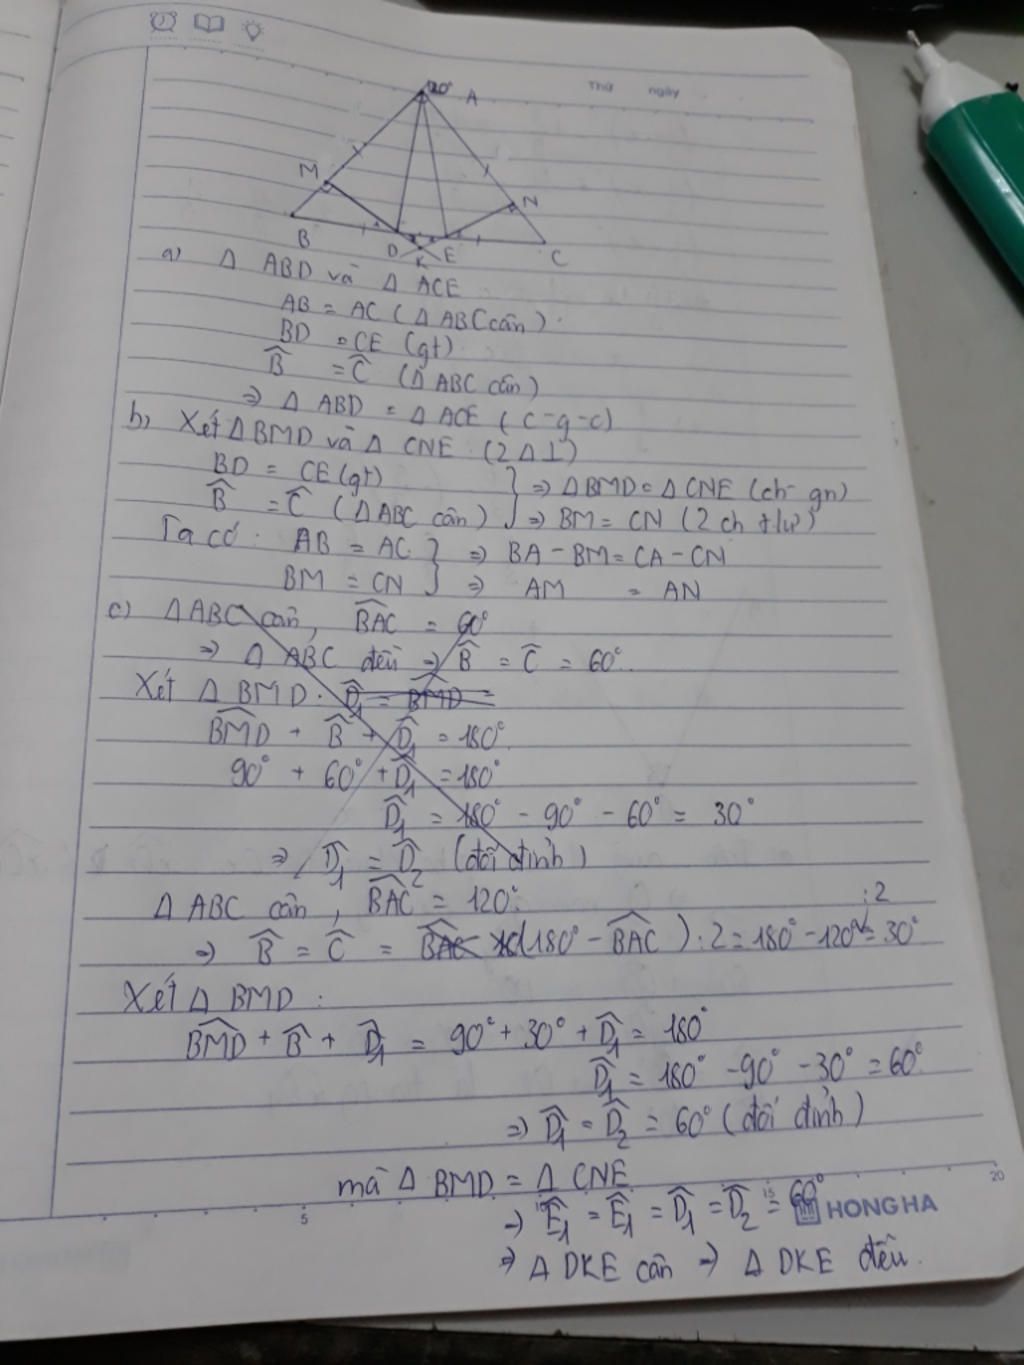 Thứ ngày
120° A
M
N
B D K E C
a) Δ ABD và Δ ACE
AB = AC (Δ ABC cân).
BD = CE (gt)
B̂ = Ĉ (Δ ABC cân)
⇒ Δ ABD = Δ ACE (c-g-c)
b, Xét Δ BMD và Δ CNE (2 Δ ⊥)
BD = CE (gt) } ⇒ ΔBMD = Δ CNE (ch-gn)
B̂ = Ĉ (Δ ABC cân) ⇒ BM = CN (2 ch t/ư)
Ta có: AB = AC } ⇒ BA - BM = CA - CN
BM = CN ⇒ AM = AN
c) Δ ABC cân, BAC̑ = 60°
⇒ Δ ABC đều ⇒ B̂ = Ĉ = 60°.
Xét Δ BMD: D̂₁ = BMD̑ =
BMD̑ + B̂ + D̂₁ = 180°
90° + 60° + D̂₁ = 180°
D̂₁ = 180° - 90° - 60° = 30°
⇒ D̂₁ = D̂₂ (đối đỉnh)
Δ ABC cân, BAC̑ = 120°. :2
⇒ B̂ = Ĉ = BAC̑ (180° - BAC̑) : 2 = 180° - 120° = 30°
Xét Δ BMD:
BMD̑ + B̂ + D̂₁ = 90° + 30° + D̂₁ = 180°
D̂₁ = 180° - 90° - 30° = 60°
⇒ D̂₁ = D̂₂ = 60° (đối đỉnh)
mà Δ BMD = Δ CNE
⇒ Ê₁ = Ê₁ = D̂₁ = D̂₂ = 60°
5 10 15 20
HONG HA
⇒ Δ DKE cân ⇒ Δ DKE đều.